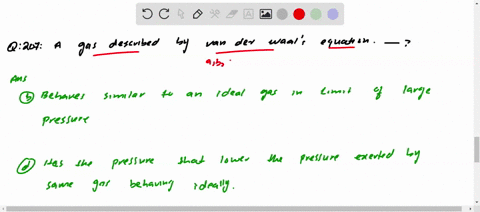 Q:207: A gas described by van der waal's equation. — ?
a,b,.
Ans
(b) Behaves similar to an ideal gas in limit of large
pressure
(d) Has the pressure that lower the pressure exerted by
same gas behaving ideally.